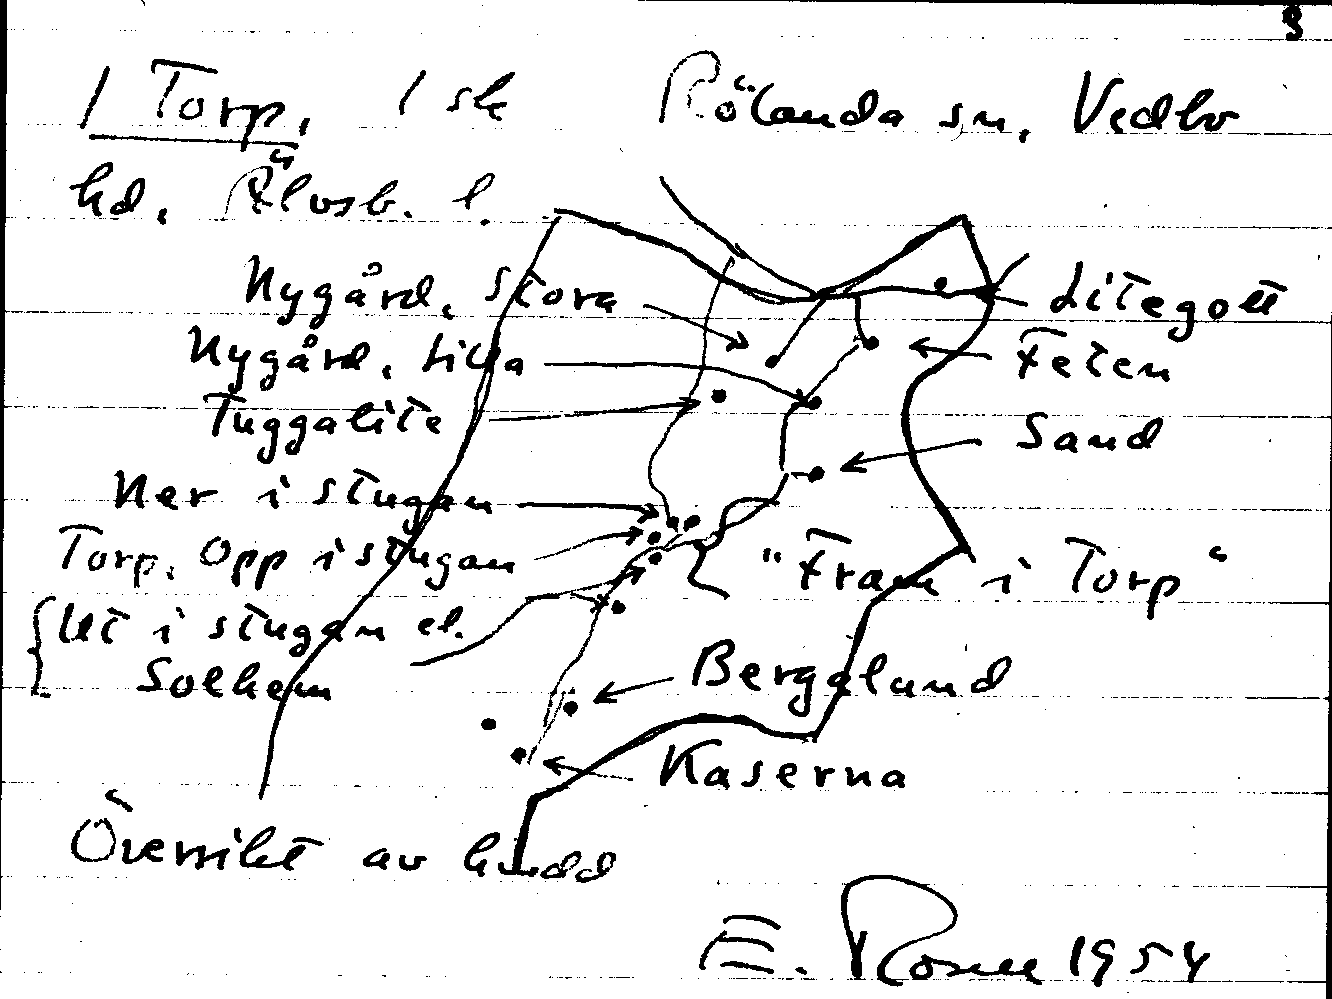 8
1 Torp, 1 sk Rölanda sn, Vedbo
hd, Älvsb. l.
Nygård, Stora
Litegott
Nygård, Lilla
Feten
Tuggalite
Sand
Ner i stugan
Torp, Opp i stugan
"Fram i Torp"
Ut i stugan el.
Solhem
Bergslund
Kaserna
Översikt av
E. Rosell 1954